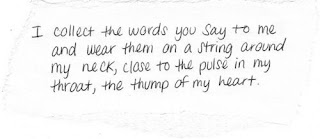 I collect the words you say to me
and wear them on a string around
my neck, close to the pulse in my
throat, the thump of my heart.